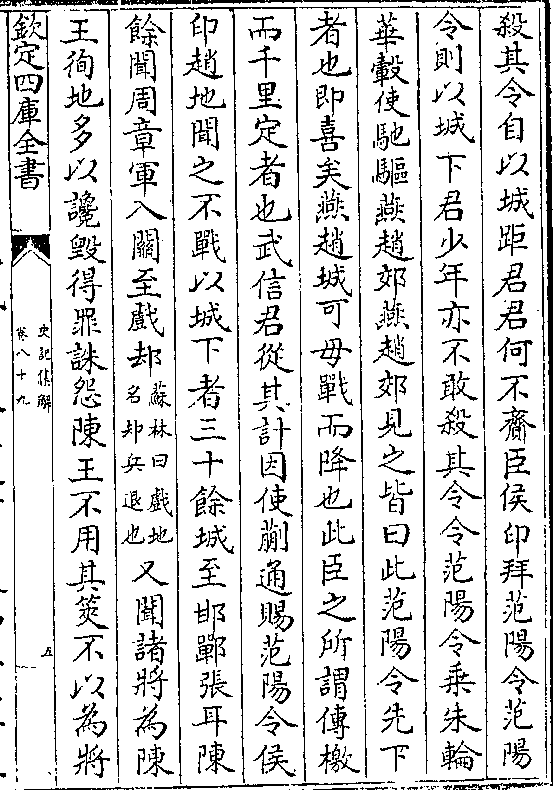 殺其令自以城距君君何不齎臣侯印拜范陽令范陽
令則以城下君少年亦不敢殺其令令范陽令乗朱輪
華轂使馳驅燕趙郊燕趙郊見之皆曰此范陽令先下
者也即喜矣燕趙城可毋戰而降也此臣之所謂傳檄
而千里定者也武信君從其計因使蒯通賜范陽令侯
印趙地聞之不戰以城下者三十餘城至邯鄲張耳陳
餘聞周章軍入關至戲却蘇林曰戲地名却兵退也又聞諸將為陳
王徇地多以讒毁得罪誅怨陳王不用其筴不以為將
欽定四庫全書
史記集解
卷八十九
五